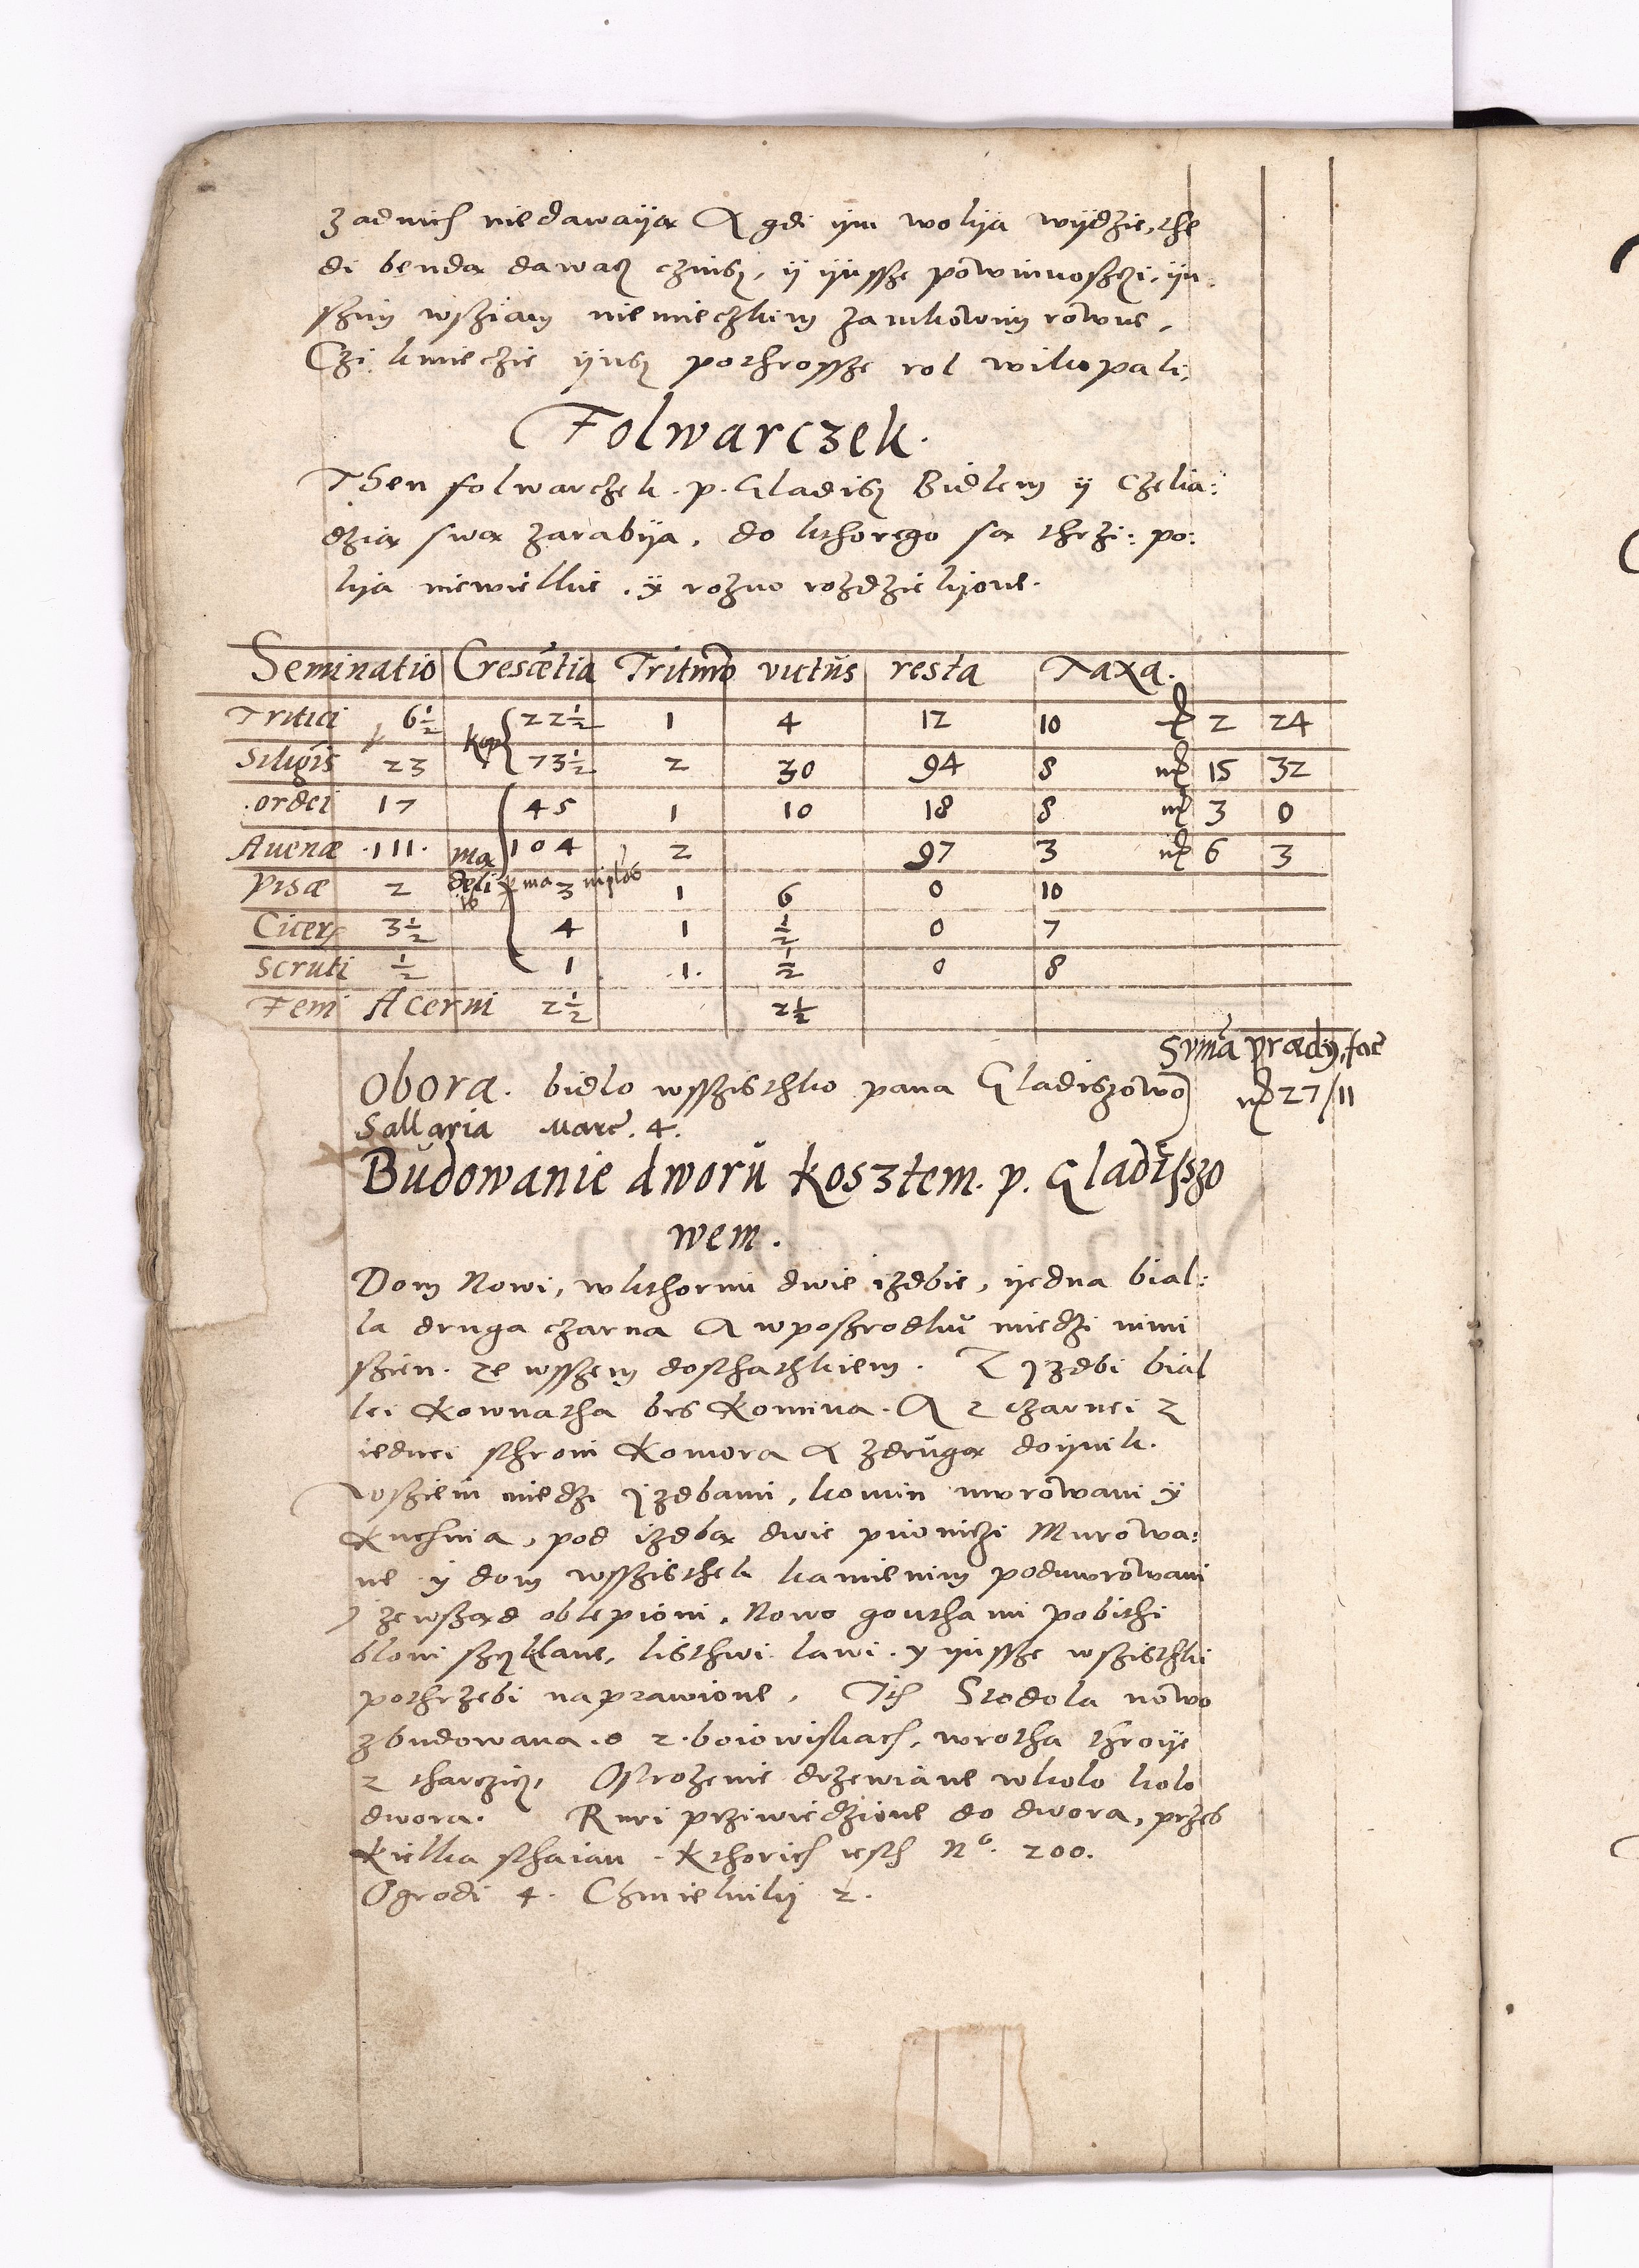 zadnich niedawaya A gdi ym wolya wydzie, the
di benda dawacz czinsz, y ynssze powinnosczi, yn
szim wsziam niemieczkim zamkowim rowne,
Czi kmieczie ynsz pothrossze rol wikopali,
Folwarczek.
Then folwarczek. p. Gladisz Bidlem y Czelia:
dzia swa zarabya, do kthorego sa thrzi: po:
lya niewielkie, y rozno rozdzielyone.
Seminatio Crescetia Tritur victus resta Taxa.
Tritici 6½ kop 22½ 1 4 12 10 2 24
Siligis 23 73½ 2 30 94 8 15 32
ordei 17 45 1 10 18 8 3 0
Auenæ .111. ma 104 2 97 3 6 3
Pisæ 2 deli 3 1 6 0 10
16
Cicer 3½ 4 1 ½ 0 7
Scruti ½ 1 .1. ½ 0 8
Femi Acerni 2½ 2½
Suma prædy, fac
Obora. bidlo wsszisthko pana Gladiszowo 27/11
Sallaria Marc. 4.
Budowanie dworu kosztem. p. Gladiszo
wem.
Dom Nowi, wkthorim dwie izdbie, yedna bial:
la druga czarna A wposzrodku miedzi nimi
szien. ze wsszem dosthathkiem. Z Jzdbi bial
lei Kownatha bes Komina. A z czarnei z
iednei sthroni Komora A zdruga doynik.
Wszieni miedzi Jzdbami, komin murowani y
Kuchnia, pod izdba dwie piwniczi Murowa:
ne y dom wsszisthek kamienim podmurowani
y zewszad oblepioni, Nowo gonthami pobithi
bloni szklane, listhwi lawi. y ynssze wszisthki
pothrzebi naprawione, Tich Stodola nowo
zbudowana. o 2. boiowiskach, wrotha throye
z tharczicz, Ostrozenie drzewiane wkolo kolo
dwora. Ruri prziwiedzione do dwora, przes
kielka sthaian. Kthorich iesth No. 200.
Ogrodi 4. Chmielniki 2.